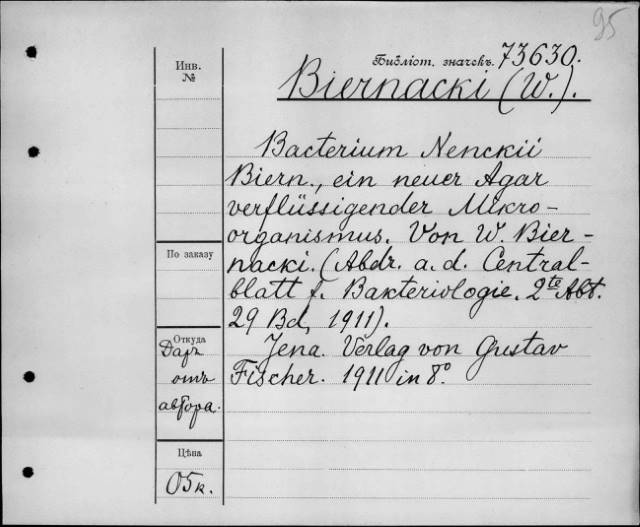 95
Инв.
№
Библіот. значекъ. 73630.
Biernacki (W.).
Bacterium Nenckii
Biern., ein neuer Agar
verflüssigender Mikro-
organismus. Von W. Bier-
nacki. (Abdr. a. d. Central-
blatt f. Bakteriologie. 2te Abt.
29 Bd, 1911).
Jena. Verlag von Gustav
Fischer. 1911 in 8°
По заказу
Откуда
Даръ
отъ
автора.
Цѣна
05 к.